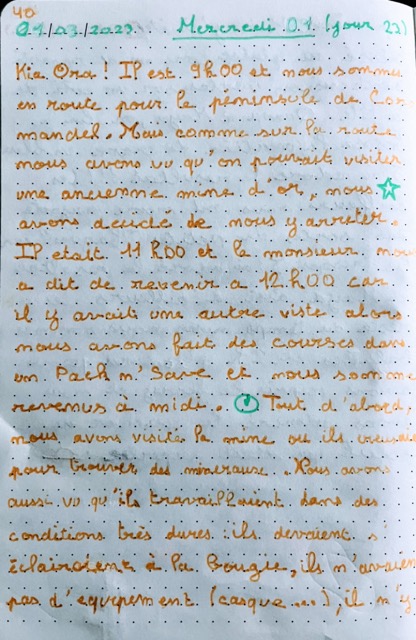 40
01/03/2023 Mercredi 01 (jour 23)
Kia Ora ! Il est 9h00 et nous sommes
en route pour la péninsule de Coro
mandel. Mais comme sur la route
nous avons vu qu'on pouvait visiter
une ancienne mine d'or, nous
avons décidé de nous y arreter.
Il etait 11h00 et le monsieur nous
a dit de revenir a 12h00 car
il y avait une autre viste alors
nous avons fait des courses dans
un Pack n' Save et nous somme
revenus à midi. Tout d'abord,
nous avons visité la mine ou ils creusaient
pour trouver des mineraux. Nous avons
aussi vu qu'ils travaillaient dans des
conditions très dures: ils devaient s'
éclairaient à la bougie, ils n'avaient
pas d'equipement (casque ...), il n'y